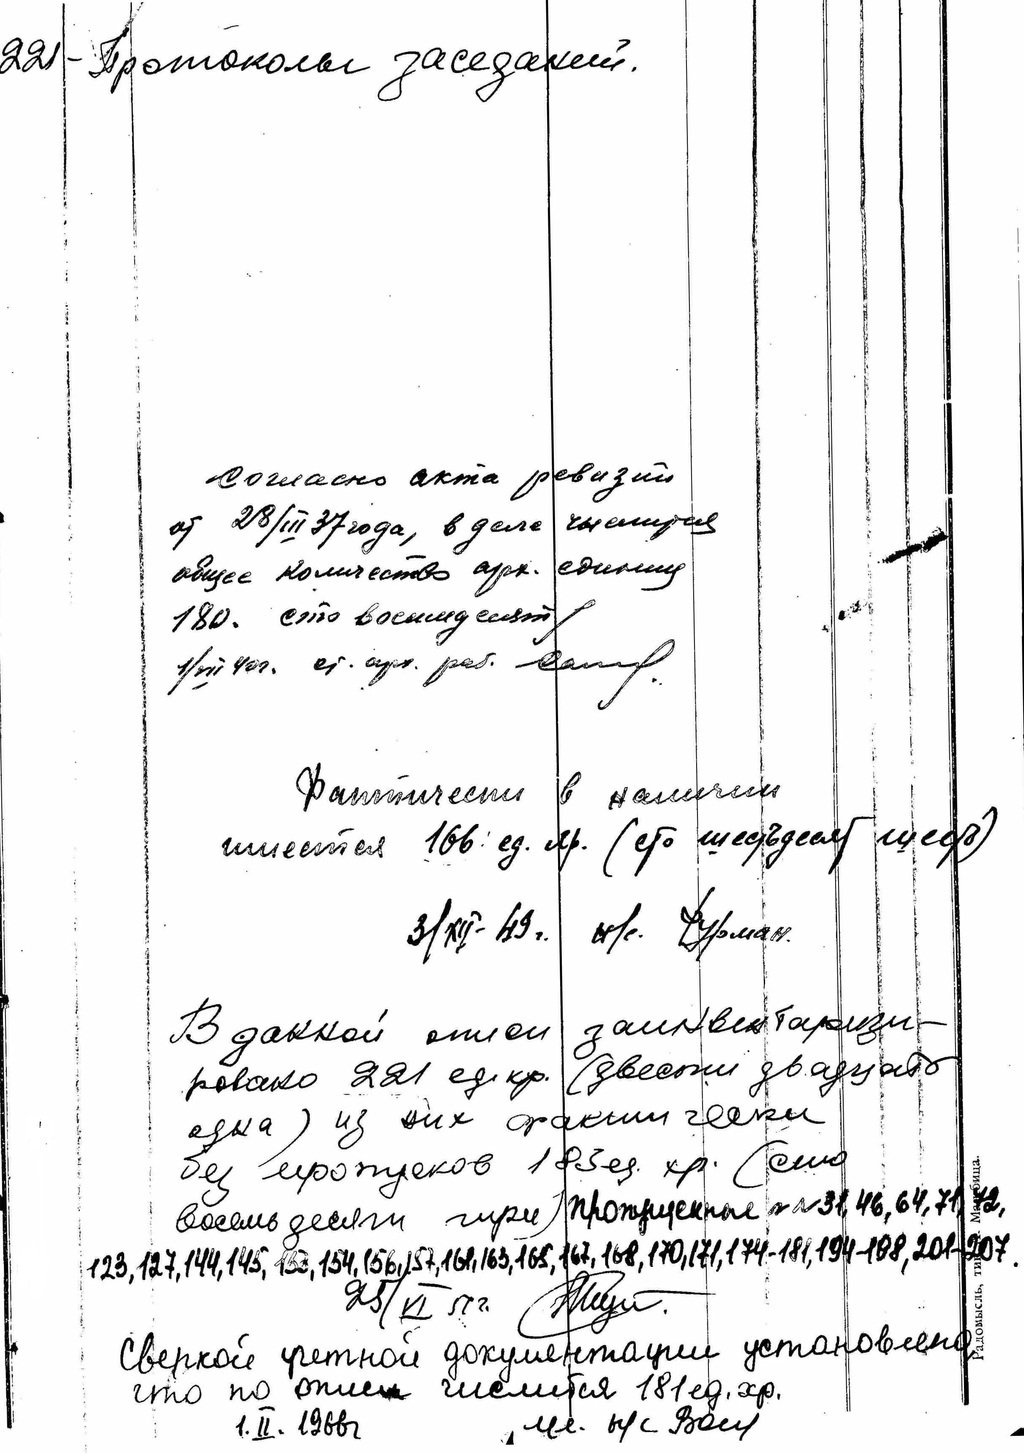 221 - Протоколы заседаний.
Согласно акта ревизии
от 28/III 37 года, в деле числится
общее количество арх. единиц
180. сто восемьдесят
1/VII 40г. ст. арх. раб.
Фактически в наличии
имеется 166 ед. хр. (сто шестьдесят шесть)
3/XII - 49 г. н/с. Фурман.
В данной описи заинвентаризи-
ровано 221 ед. хр. (двести двадцать
одна) из них фактически
без пропусков 183 ед. хр. (сто
восемьдесят три) Пропущенные №№ 31, 46, 64, 71, 72,
123, 127, 144, 145, 153, 154, 156, 157, 161, 163, 165, 167, 168, 170, 171, 174-181, 194-198, 201-207.
25/VI 57 г.
Сверкой учетной документации установлено,
что по описи числится 181 ед. хр.
1. II. 1966г мл. н/с
Радомысль, тип.